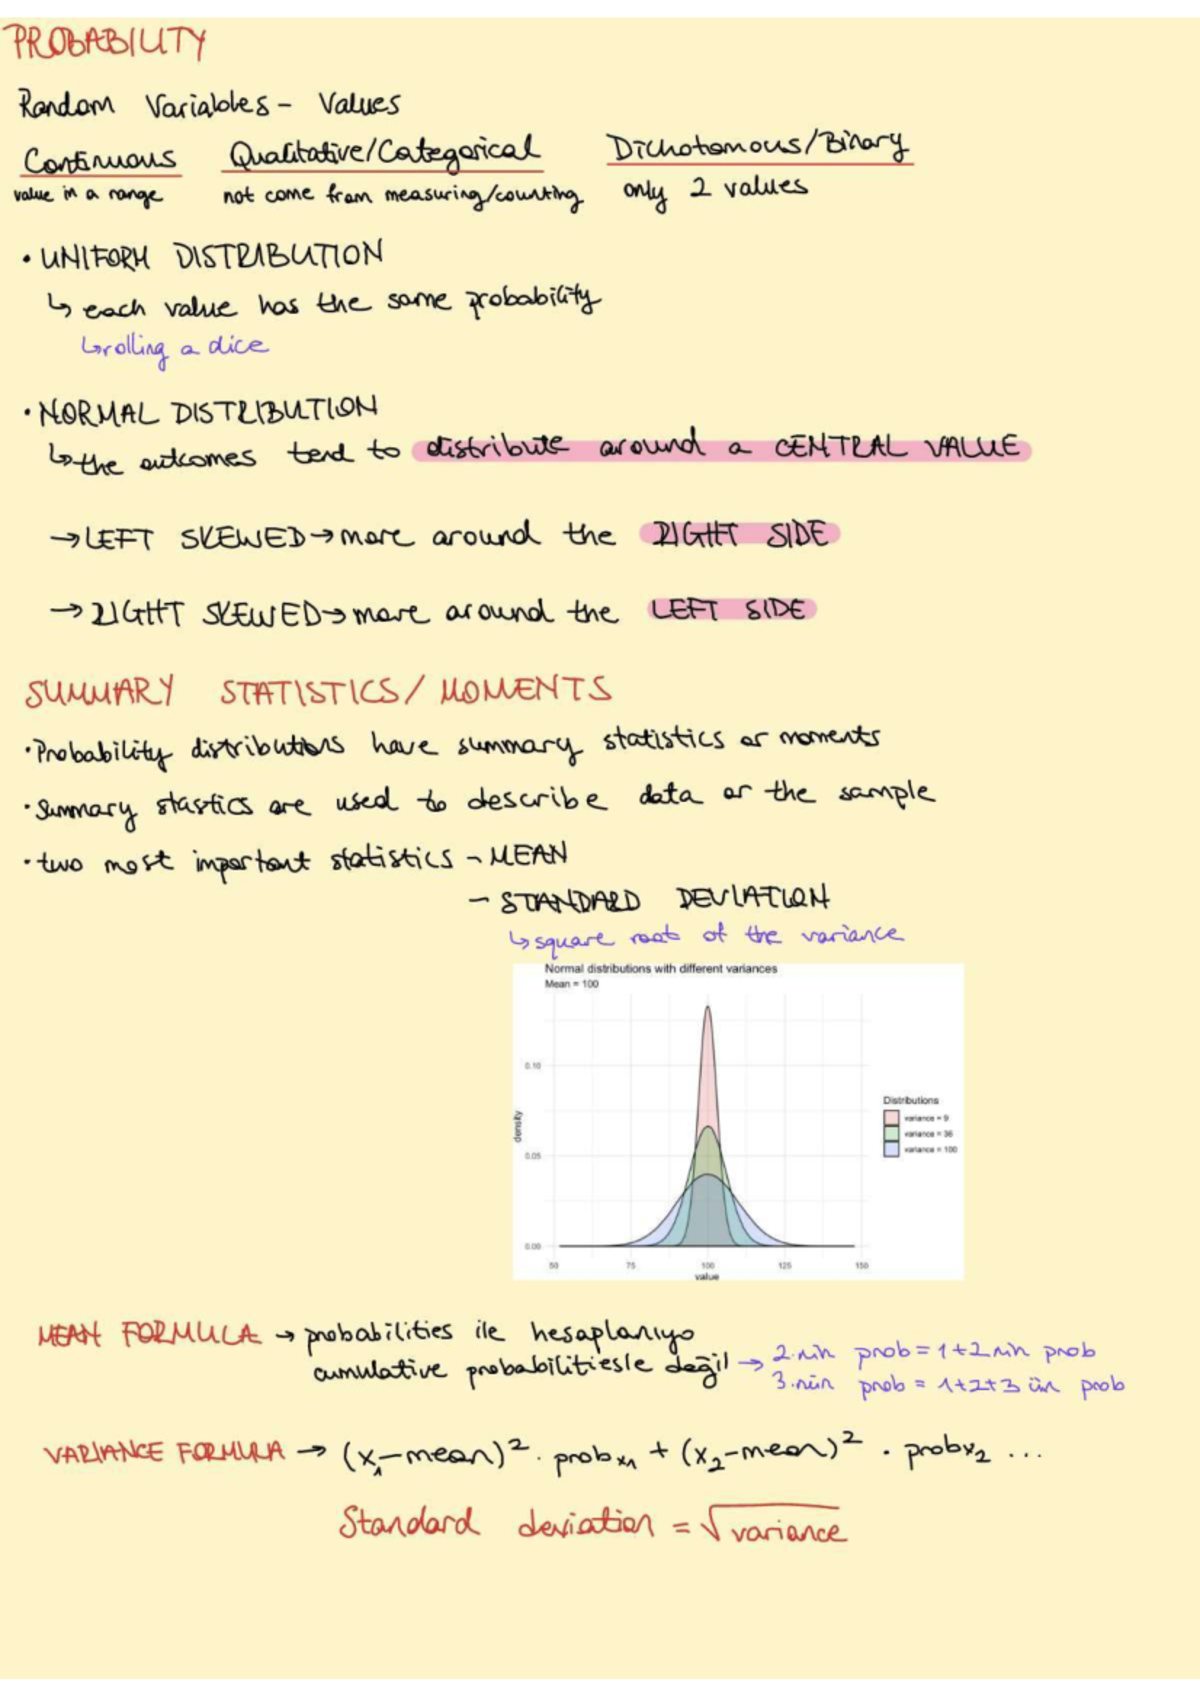 PROBABILITY
Random Variables - Values
Continuous Qualitative/Categorical Dichotomous/Binary
value in a range not come from measuring/counting only 2 values
• UNIFORM DISTRIBUTION
↳ each value has the same probability
↳ rolling a dice
• NORMAL DISTRIBUTION
↳ the outcomes tend to distribute around a CENTRAL VALUE
→ LEFT SKEWED → more around the RIGHT SIDE
→ RIGHT SKEWED → more around the LEFT SIDE
SUMMARY STATISTICS / MOMENTS
• Probability distributions have summary statistics or moments
• Summary stastics are used to describe data or the sample
• two most important statistics - MEAN
- STANDARD DEVIATION
↳ square root of the variance
Normal distributions with different variances
Mean = 100
0.10
0.05
0.00
density
50 75 100 125 150
value
Distributions
variance = 9
variance = 36
variance = 100
MEAN FORMULA → probabilities ile hesaplanıyo
cumulative probabilitiesle değil → 2.nin prob = 1+2 nin prob
3.nün prob = 1+2+3 ün prob
VARIANCE FORMULA → (x₁-mean)² · prob x₁ + (x₂-mean)² · prob x₂ ...
Standard deviation = √variance